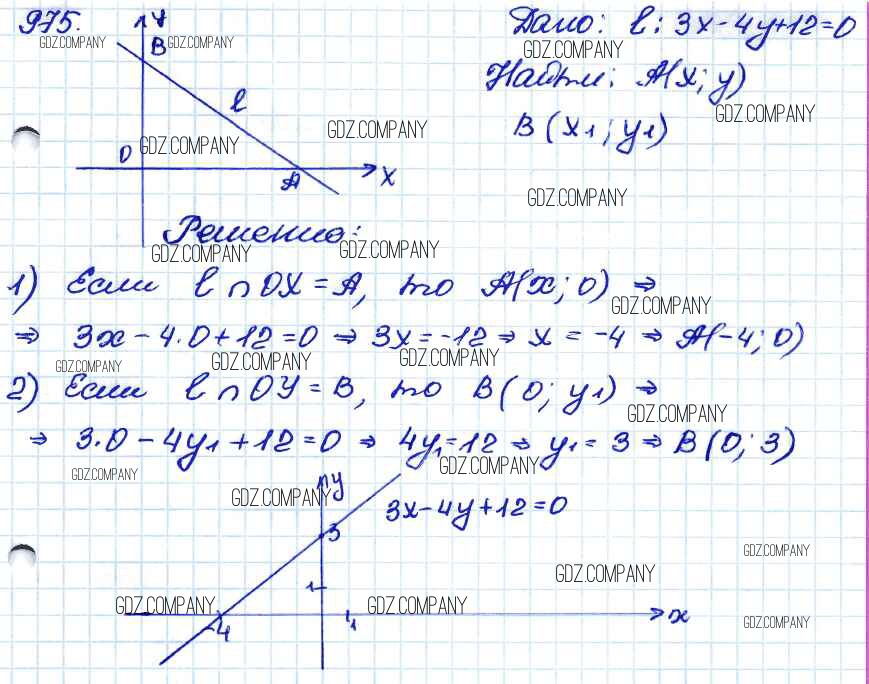 975.
GDZ.COMPANY GDZ.COMPANY
y
B
l
O
A
x
GDZ.COMPANY
GDZ.COMPANY
Дано: l: 3x-4y+12=0
GDZ.COMPANY
Найти: A(x; y)
GDZ.COMPANY
B(x₁; y₁)
GDZ.COMPANY
Решение:
GDZ.COMPANY GDZ.COMPANY
1) Если l ∩ OX = A, то A(x; 0) ⇒
GDZ.COMPANY
⇒ 3x - 4·0 + 12 = 0 ⇒ 3x = -12 ⇒ x = -4 ⇒ A(-4; 0)
GDZ.COMPANY GDZ.COMPANY GDZ.COMPANY
2) Если l ∩ OY = B, то B(0; y₁) ⇒
GDZ.COMPANY
⇒ 3·0 - 4y₁ + 12 = 0 ⇒ 4y₁ = 12 ⇒ y₁ = 3 ⇒ B(0; 3)
GDZ.COMPANY GDZ.COMPANY
GDZ.COMPANY
y
3x-4y+12=0
3
GDZ.COMPANY
1
GDZ.COMPANY
GDZ.COMPANY GDZ.COMPANY
x
GDZ.COMPANY
-4
1